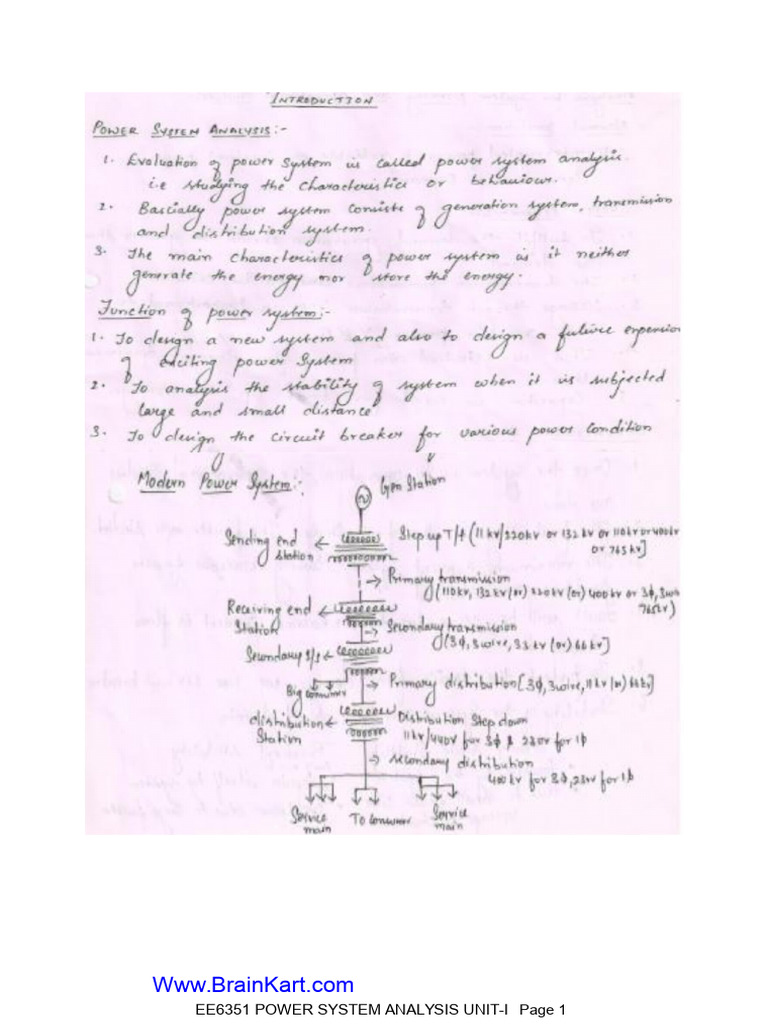 INTRODUCTION
POWER SYSTEM ANALYSIS:-
1. Evaluation of power system is called power system analysis.
i.e studying the characteristics or behaviour.
2. Bascially power system consists of generation system, transmission
and distribution system.
3. The main characteristics of power system is it neither
generate the energy nor store the energy.
Function of power system:-
1. To design a new system and also to design a future expension
of exciting power system
2. To analysis the stability of system when it is subjected
large and small distance
3. To design the circuit breaker for various power condition
Modern Power System:-
Gen Station
Sending end
station
Step up T/f (11 kv/220kv or 132 kv or 110kv or 400kv
or 765 kv]
Primary transmission
(110kv, 132 kv (or) 220kv (or) 400 kv or 3ϕ, 3wire
765kv)
Receiving end
Station
Secondary transmission
(3ϕ, 3wire, 33 kv (or) 66kv]
Secondary s/s
Big consumer
Primary distribution [3ϕ, 3wire, 11kv (or) 66kv]
distribution
Station
Distribution Step down
11kv/440v for 3ϕ & 230v for 1ϕ
secondary distribution
400kv for 3ϕ, 23v for 1ϕ
Service
main
To Consumer
Service
main
Www.BrainKart.com
EE6351 POWER SYSTEM ANALYSIS UNIT-I Page 1